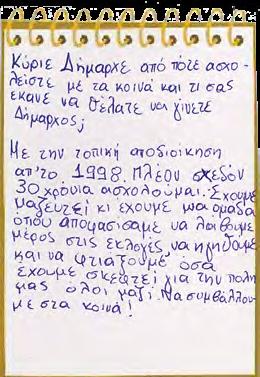 Κύριε Δήμαρχε από πότε ασχο-
λείστε με τα κοινά και τι σας
έκανε να θέλατε να γίνετε
Δήμαρχος;
Με την τοπική αποδιοίκηση
απ'το 1998. Πλέον σχεδόν
30 χρόνια ασχολούμαι. Έχουμε
μαζευτεί κι έχουμε μια ομάδα
όπου αποφασίσαμε να λάβουμε
μέρος στις εκλογές, να ηγηθούμε
και να φτιάξουμε όσα
έχουμε σκεφτεί για την πόλη
μας όλοι μαζί. Να συμβάλλου-
με στα κοινά!